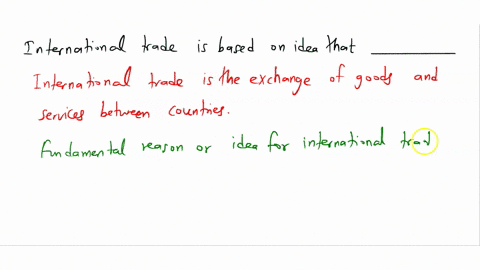 International trade is based on idea that __________
International trade is the exchange of goods and
services between countries.
Fundamental reason or idea for international trad